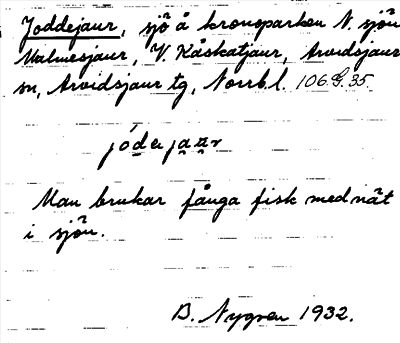 Joddejaur, sjö å kronoparken N. sjön
Malmesjaur, V. Kåskatjaur, Arvidsjaur
sn, Arvidsjaur tg, Norrb.l. 106.G.35.
jóde jaar
Man brukar fånga fisk med nät
i sjön.
B. Nygren 1932.